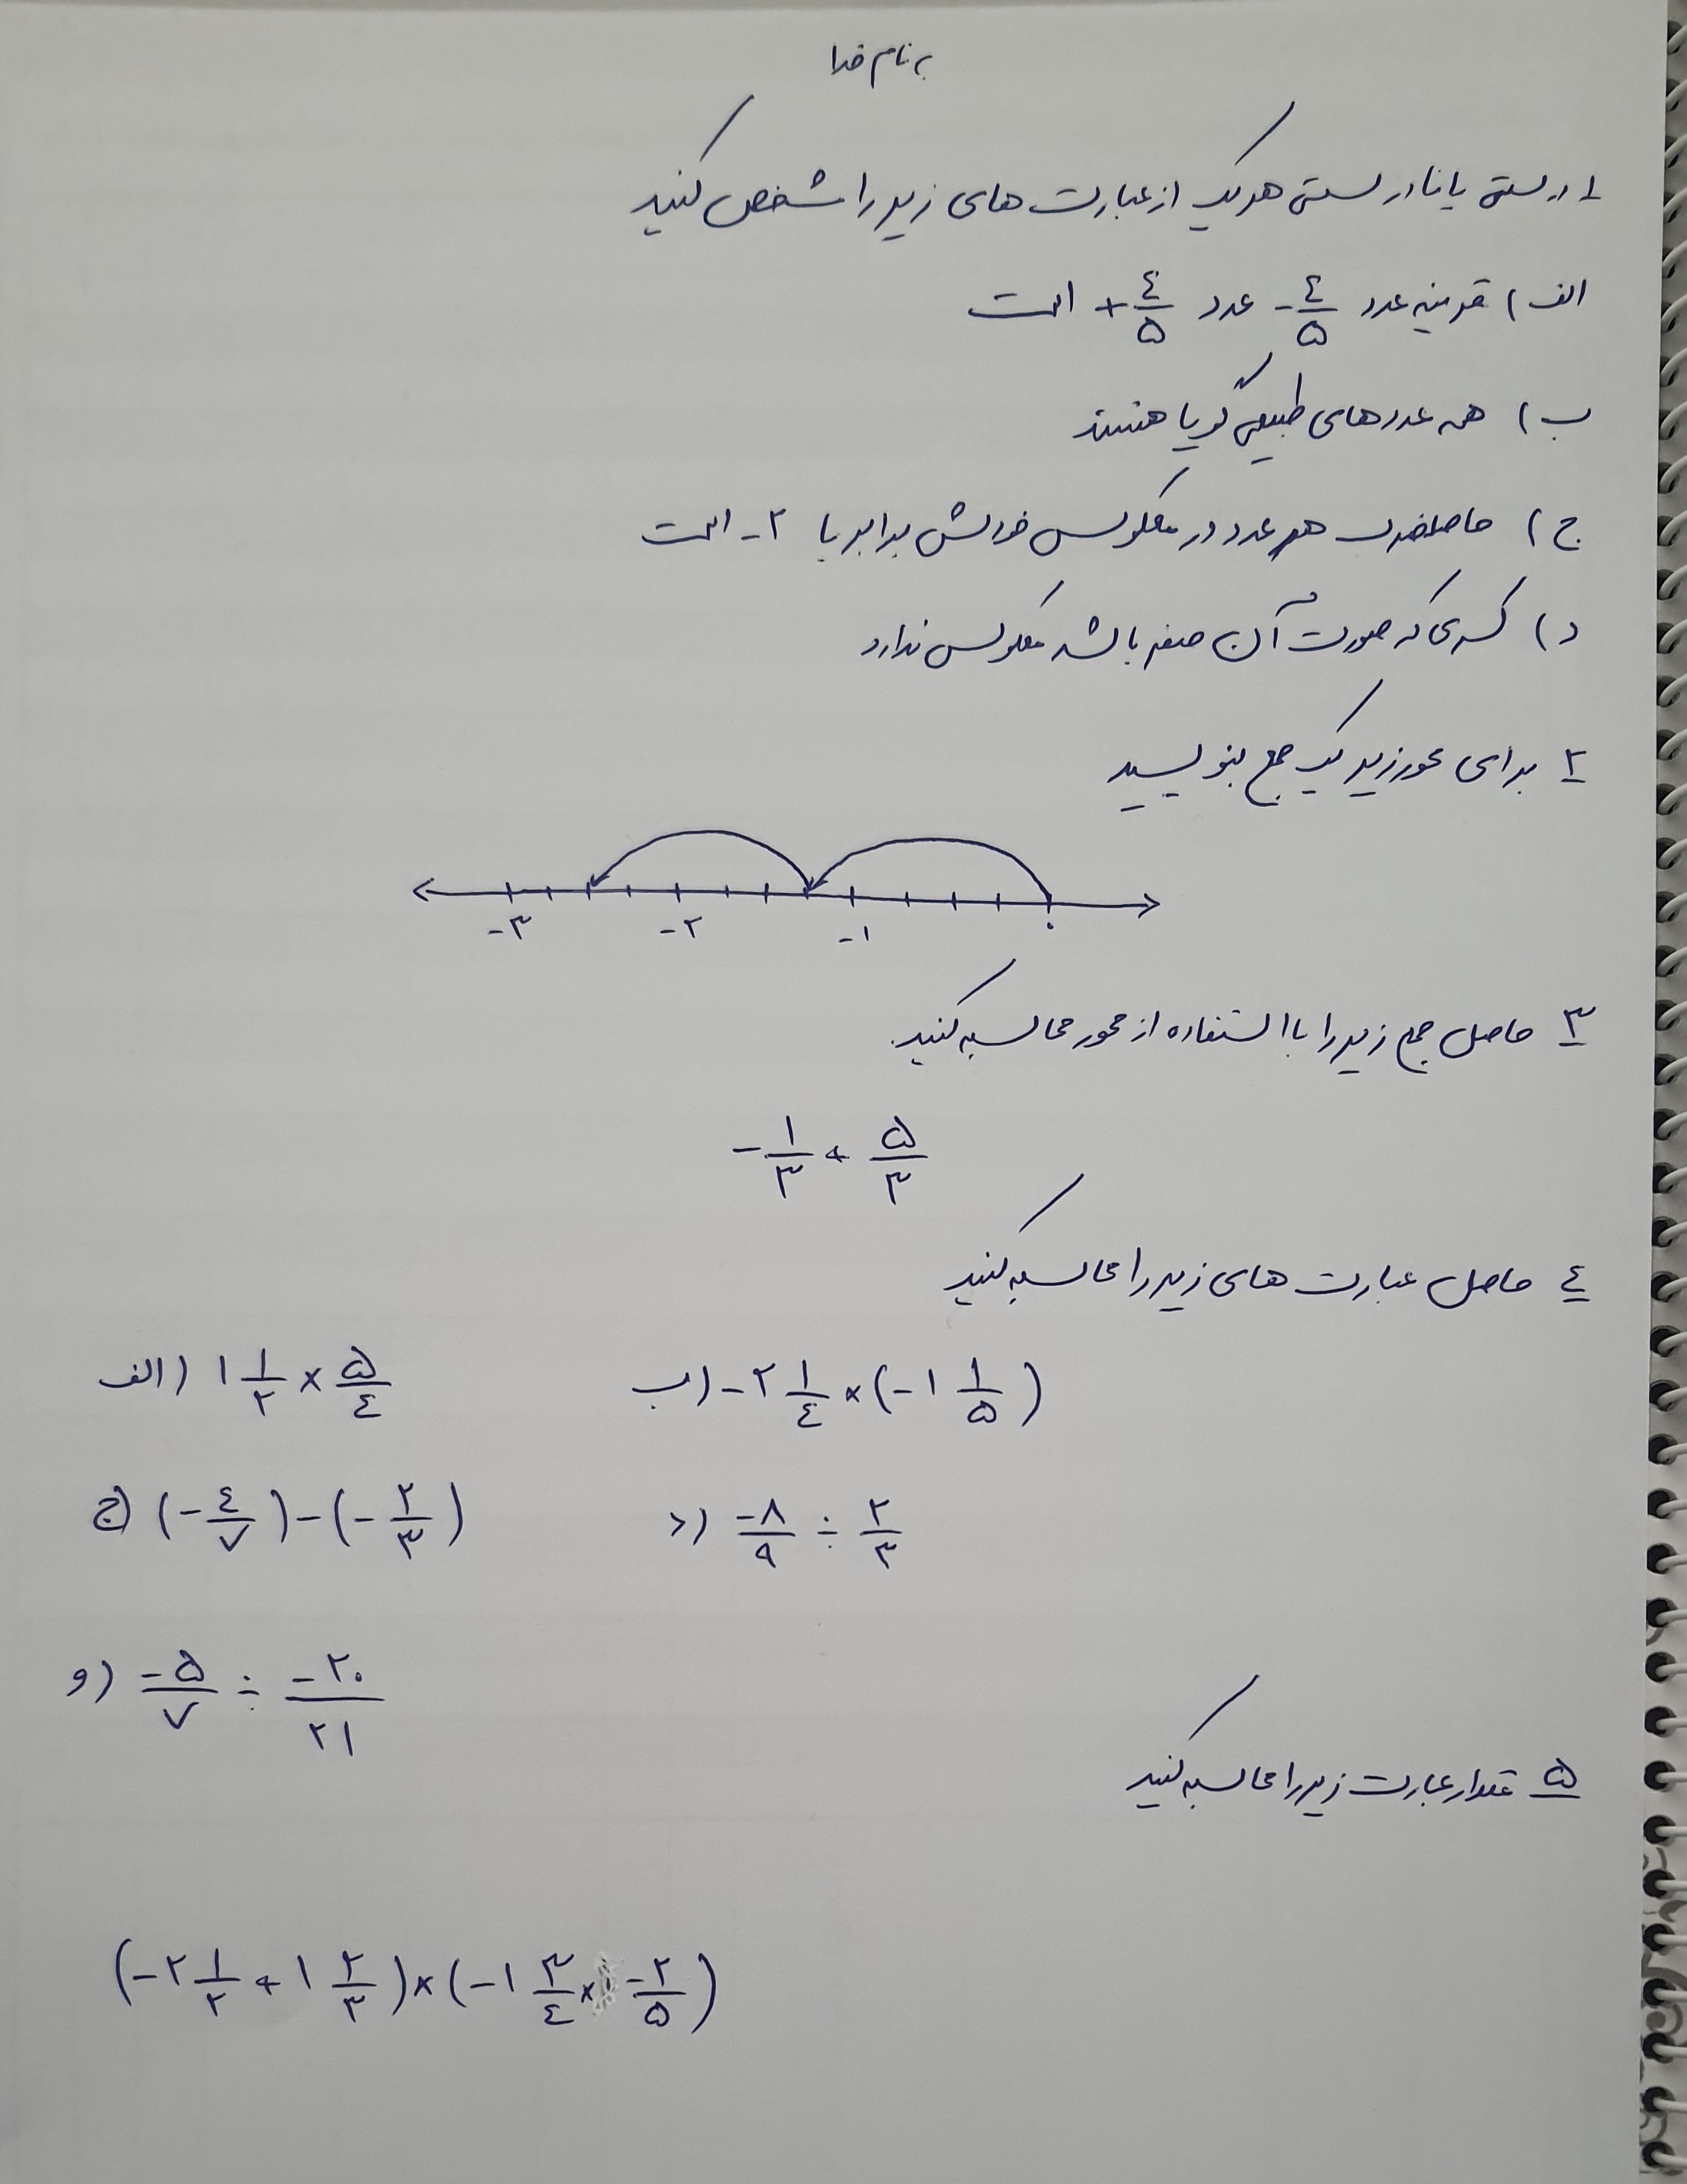 به نام خدا
۱ درستی یا نادرستی هر یک از عبارت های زیر را مشخص کنید
الف ) قرینه عدد -۴/۵ عدد +۴/۵ است
ب ) همه عددهای طبیعی گویا هستند
ج ) حاصلضرب هر عدد در معکوس خودش برابر با -۲ است
د ) کسری که صورت آن صفر باشد معکوس ندارد
۲ برای محور زیر یک جمع بنویسید
-۳ -۲ -۱ ۰
۳ حاصل جمع زیر را با استفاده از محور محاسبه کنید.
-۱/۳ + ۵/۳
۴ حاصل عبارت های زیر را محاسبه کنید
الف) ۱ ۱/۲ × ۵/۴ ب) -۲ ۱/۴ × (-۱ ۱/۵)
ج) (-۴/۷) - (-۲/۳) د) -۸/۹ ÷ ۲/۳
و) -۵/۷ ÷ -۲۰/۲۱
۵ مقدار عبارت زیر را محاسبه کنید
(-۲ ۱/۲ + ۱ ۲/۳) × (-۱ ۳/۴ × -۲/۵)